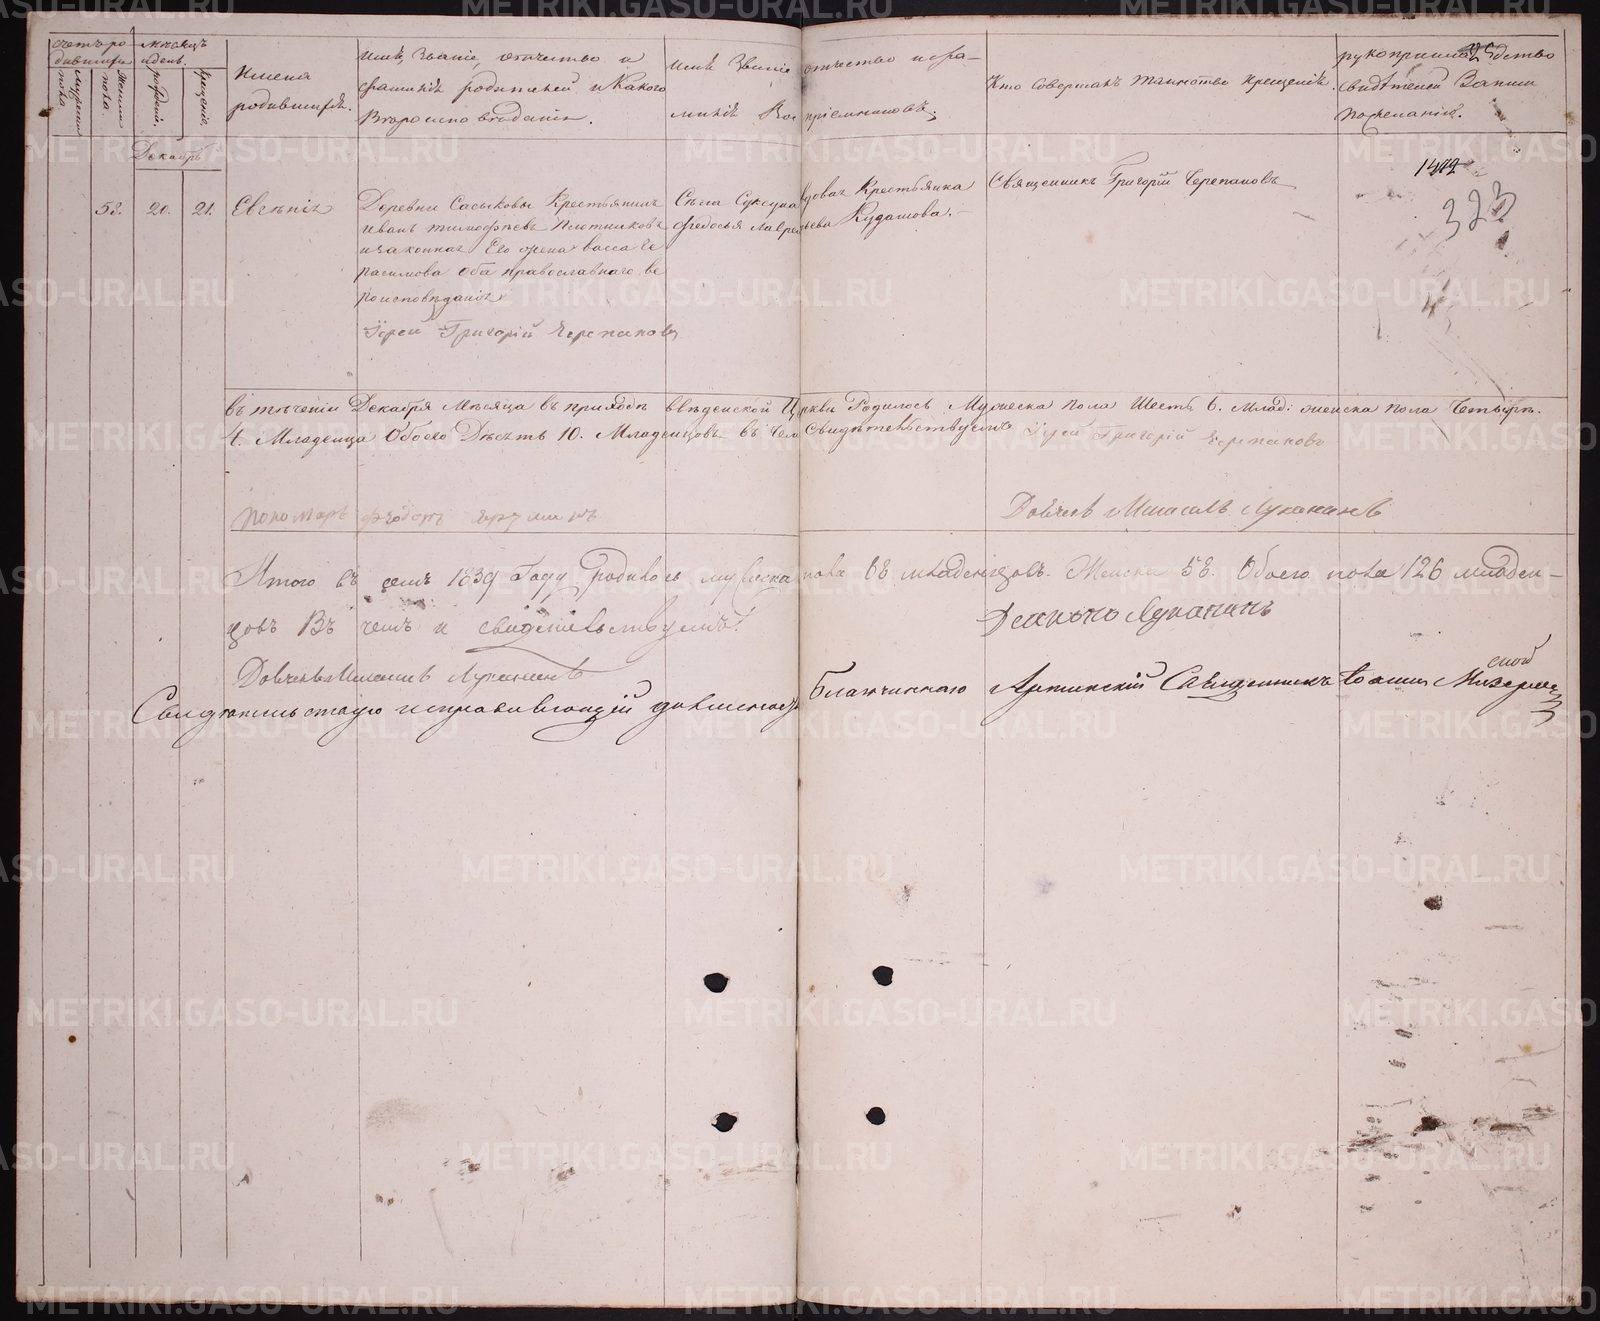 счетъ ро
дившихся
Мужеска
пола
Женска
пола.
Мѣсяцъ
и день.
рожденія.
крещенія.
Имена
родившихся.
Имя, Званіе, отчество и
фамилія родителей и Какого
Вѣроисповѣданія.
Имя Званіе отчество и фа-
милія Воспріемниковъ.
Кто Совершалъ таинство крещенія.
рукоприкладство
свидѣтелей Записи
по желанію.
Декабрь
58. 20. 21. Евгенія
Деревни Сасыковы Крестьянинъ
Иванъ тимофѣевъ Плотниковъ
и законная Его жена васса Ге
расимова Оба православнаго ве
роисповѣданія
Іерей Григорій Черепановъ
Села Суксуна вдовая Крестьянка
Федосья Лаврентьева Кудашова.
Священникъ Григорій Черепановъ
323
4
въ теченіи Декабря Мѣсяца въ приходѣ введенской Церкви Родилось Мужеска пола Шесть 6. Млад: женска пола Четыре.
4. Младенца Обоего Десять 10. Младенцовъ въ чемъ Свидѣтельствуемъ Іерей Григорій Черепановъ
пономарь федотъ
Дьячекъ Луканинъ
Итого въ семъ 1839 Году Родилось мужеска пола 68 младенцовъ. Женска 58. Обоего пола 126 младен-
цовъ Въ чемъ и свидетельствуемъ.
Луканинъ
Дьячекъ Луканинъ
Свидѣтельствую исправляющій должность Благочиннаго Артинскій Священникъ Іоаннъ
METRIKI.GASO-URAL.RU